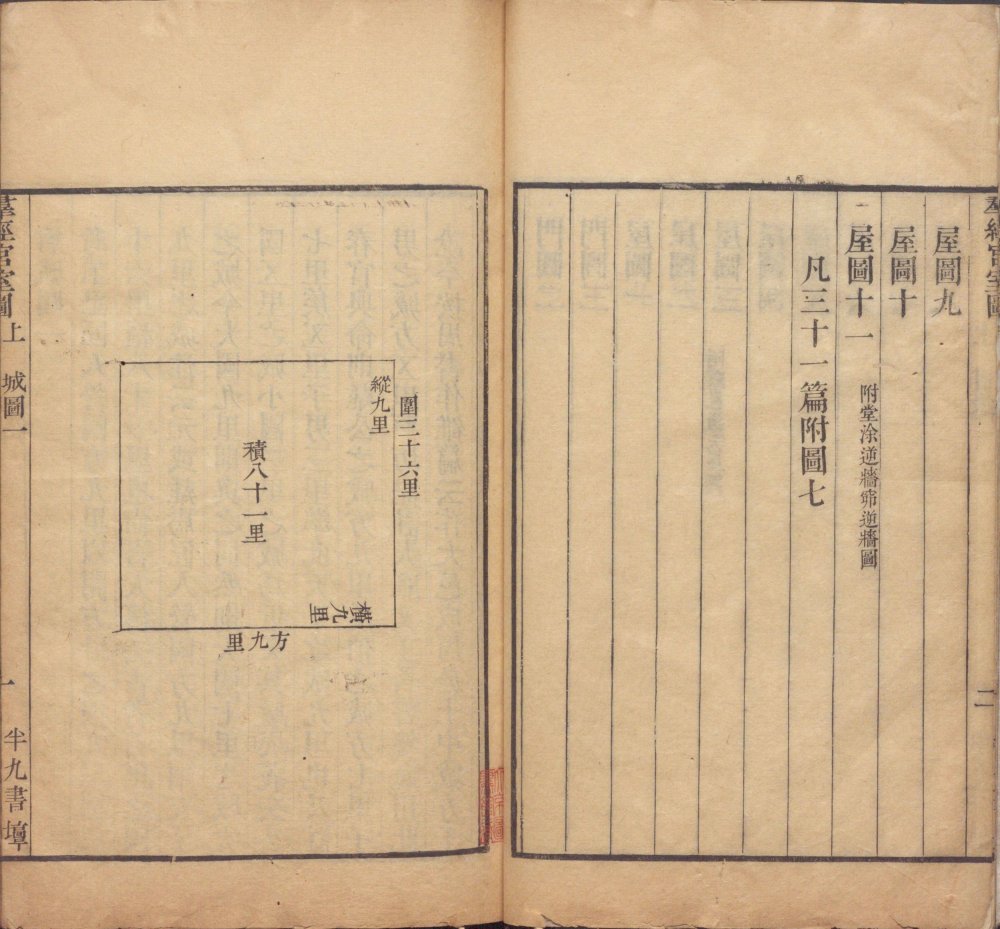 羣經宮室圖
二
屋圖九
屋圖十
屋圖十一 附堂涂逆牆 逆牆圖
凡三十一篇附圖七
圍三十六里
縱九里
積八十一里
橫九里
方九里
羣經宮室圖上 城圖一
一
半九書壇